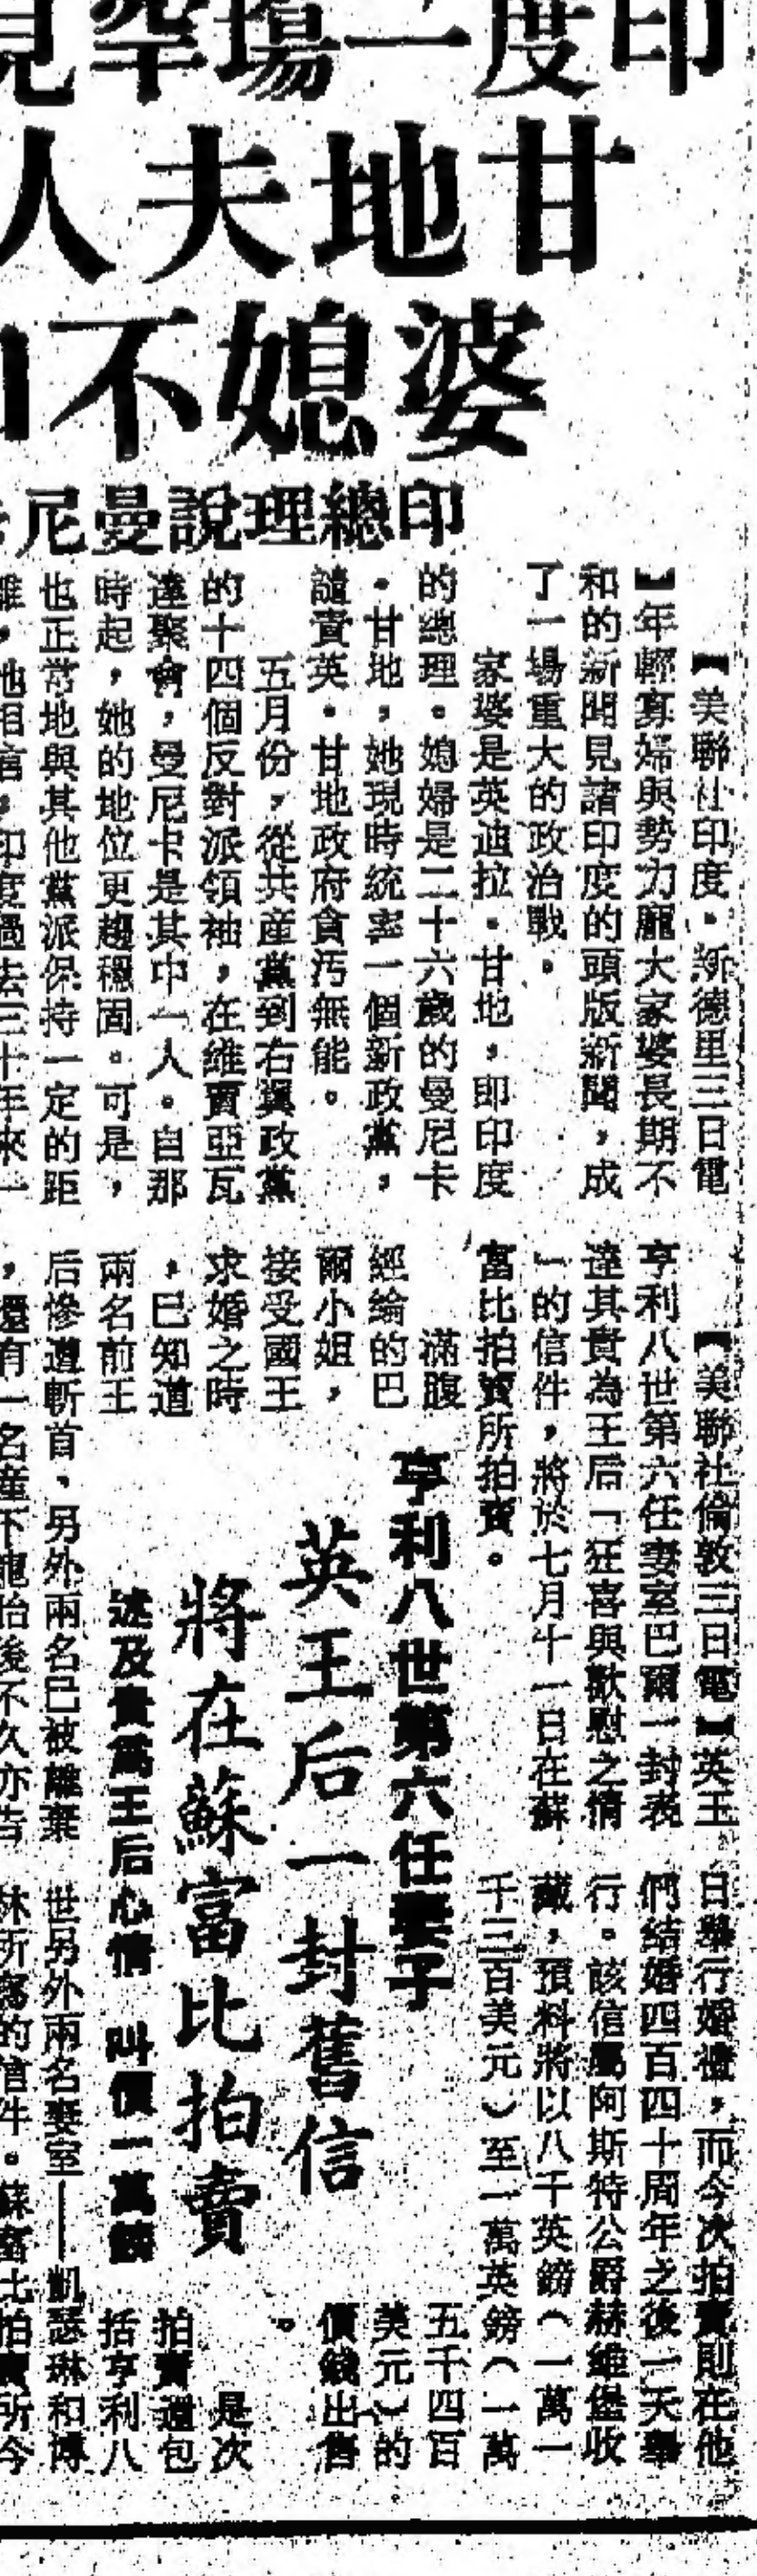 印度一場罕見
甘地夫人
婆媳不
印總理說曼尼
【美聯社印度・新德里三日電
】年輕寡婦與勢力龐大家婆長期不
和的新聞見諸印度的頭版新聞，成
了一場重大的政治戰。
家婆是英迪拉・甘地，即印度
的總理。媳婦是二十六歲的曼尼卡
・甘地，她現時統率一個新政黨，
譴責英・甘地政府貪汚無能。
五月份，從共産黨到右翼政黨
的十四個反對派領袖，在維賈亞瓦
達聚會，曼尼卡是其中一人。自那
時起，她的地位更趨穩固。可是，
也正常地與其他黨派保持一定的距
離，她相信，印度過去三十年來一
【美聯社倫敦三日電】英王
亨利八世第六任妻室巴爾一封表
達其貴為王后「狂喜與歡慰之情
」的信件，將於七月十一日在蘇
富比拍賣所拍賣。
亨利八世第六任妻子
英王后一封舊信
將在蘇富比拍賣
述及貴爲王后心情 叫價一萬鎊
滿腹
經綸的巴
爾小姐，
接受國王
求婚之時
，已知道
兩名前王
后慘遭斬首、另外兩名已被離棄
，還有一名産下龍胎後不久亦告
日舉行婚禮，而今次拍賣則在他
們結婚四百四十周年之後一天舉
行。該信屬阿斯特公爵赫維堡收
藏，預料將以八千英鎊（一萬一
千三百美元）至一萬英鎊（一萬
五千四百
美元）的
價錢出售
。
是次
拍賣還包
括亨利八
世另外兩名妻室——凱瑟琳和博
林所寫的信件。蘇富比拍賣所今